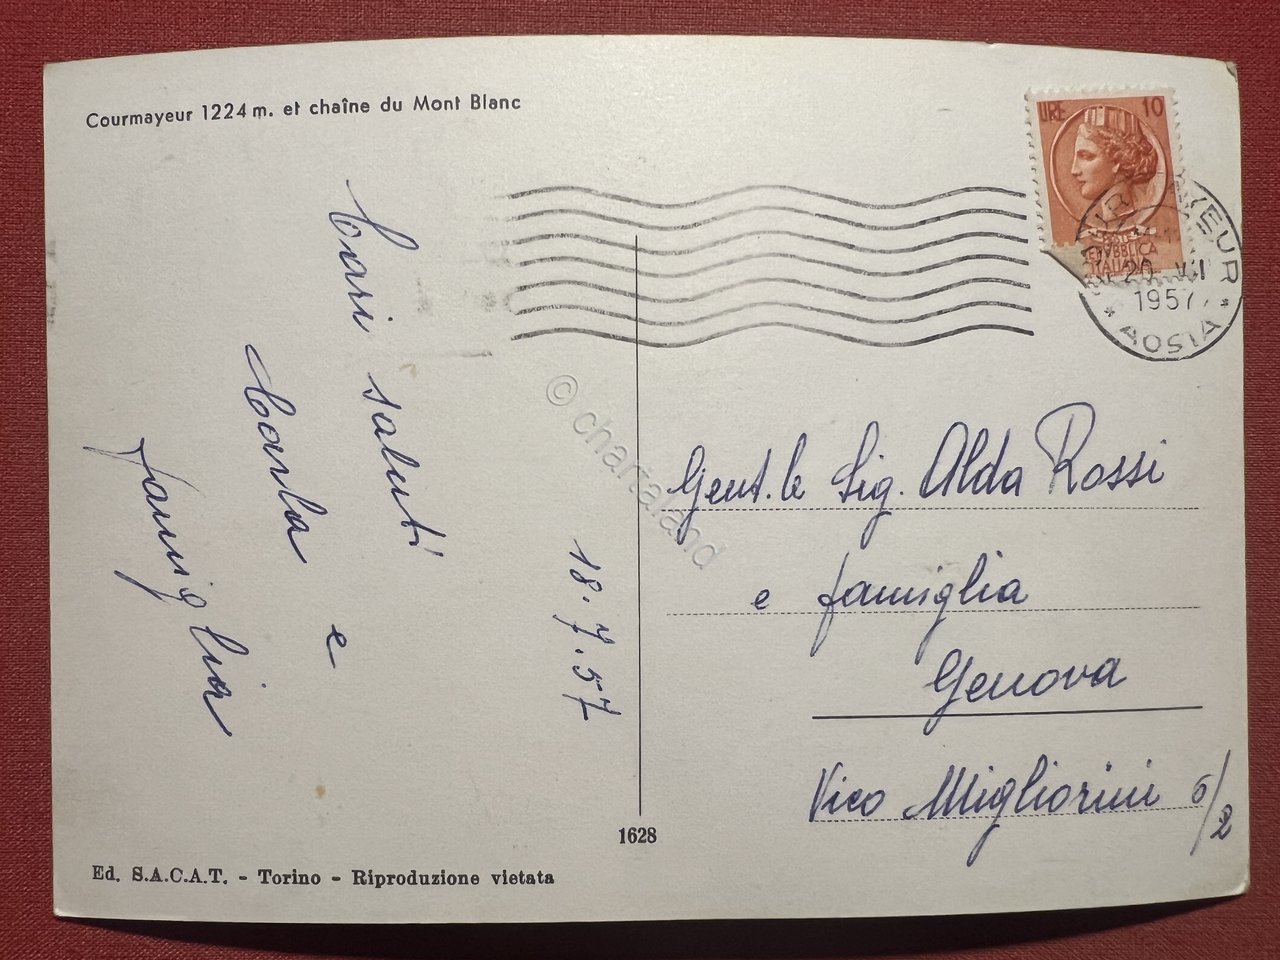 Courmayeur 1224 m. et chaîne du Mont Blanc
LIRE 10
REPVBBLICA
ITALIANA
COURMAYEUR
20 VII
1957
* AOSTA *
Cari saluti
Carla e
famiglia
18.7.57
© chartaland
Gent.le Sig. Alda Rossi
e famiglia
Genova
Vico Migliorini 6/2
1628
Ed. S.A.C.A.T. - Torino - Riproduzione vietata